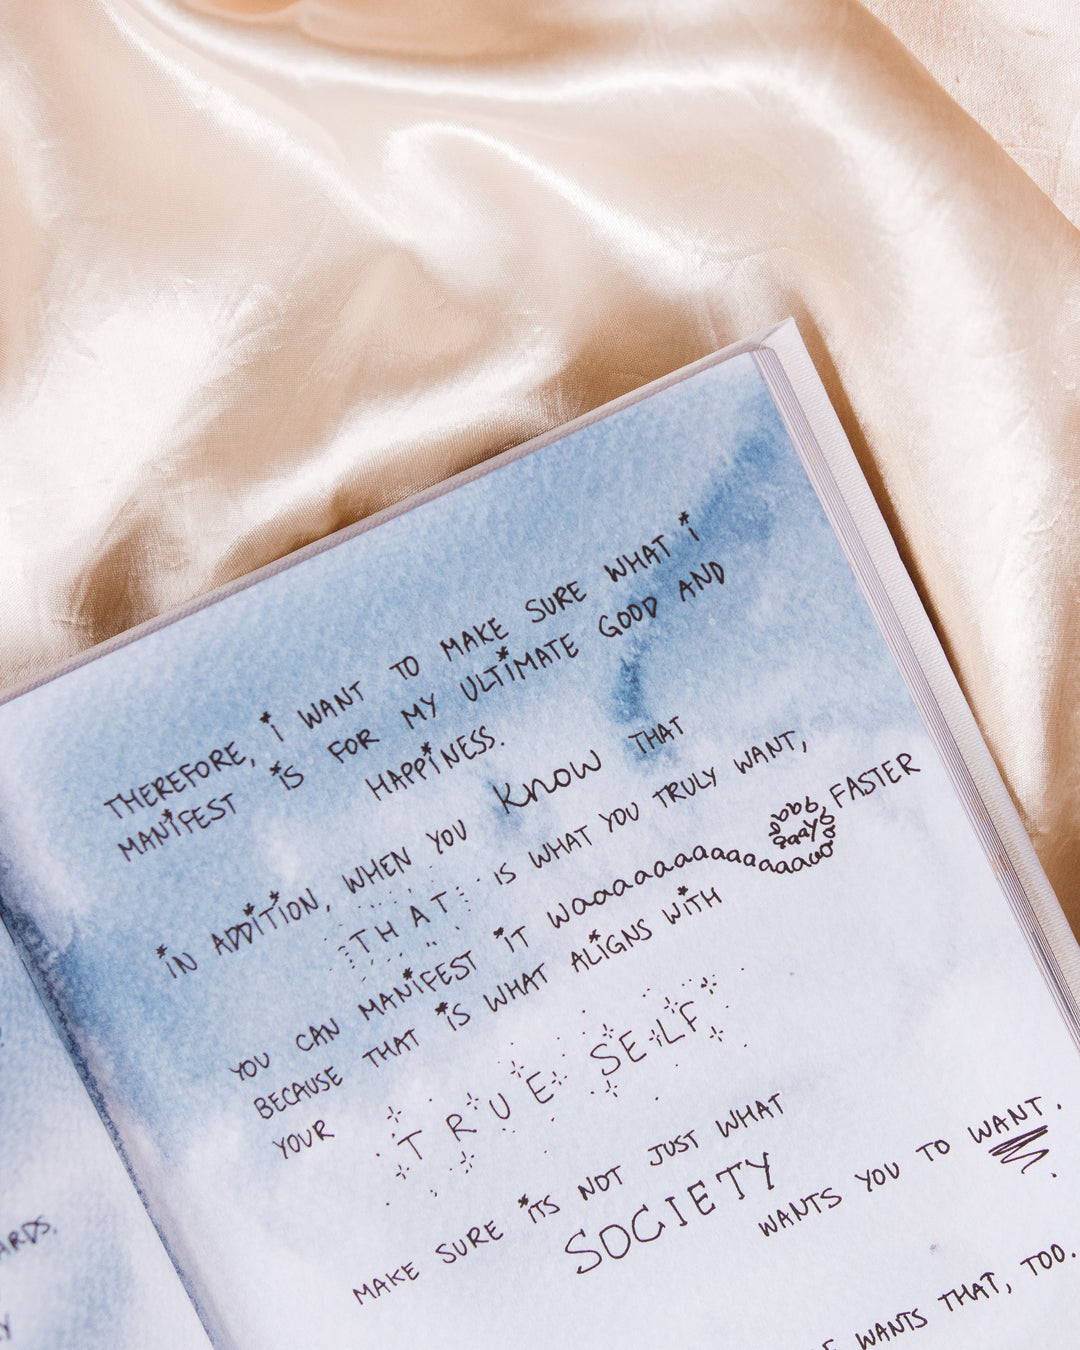 THEREFORE, i WANT TO MAKE SURE WHAT i
MANiFEST iS FOR MY ULTiMATE GOOD AND
HAPPiNESS.
iN ADDiTiON, WHEN YOU KNOW THAT
THAT iS WHAT YOU TRULY WANT,
YOU CAN MANiFEST iT waaaaaaaaaaaaaaaaaaaaaaay FASTER
BECAUSE THAT iS WHAT ALiGNS WiTH
YOUR TRUE SELF
MAKE SURE iTS NOT JUST WHAT
SOCIETY
WANTS YOU TO WANT.
WANTS THAT, TOO.